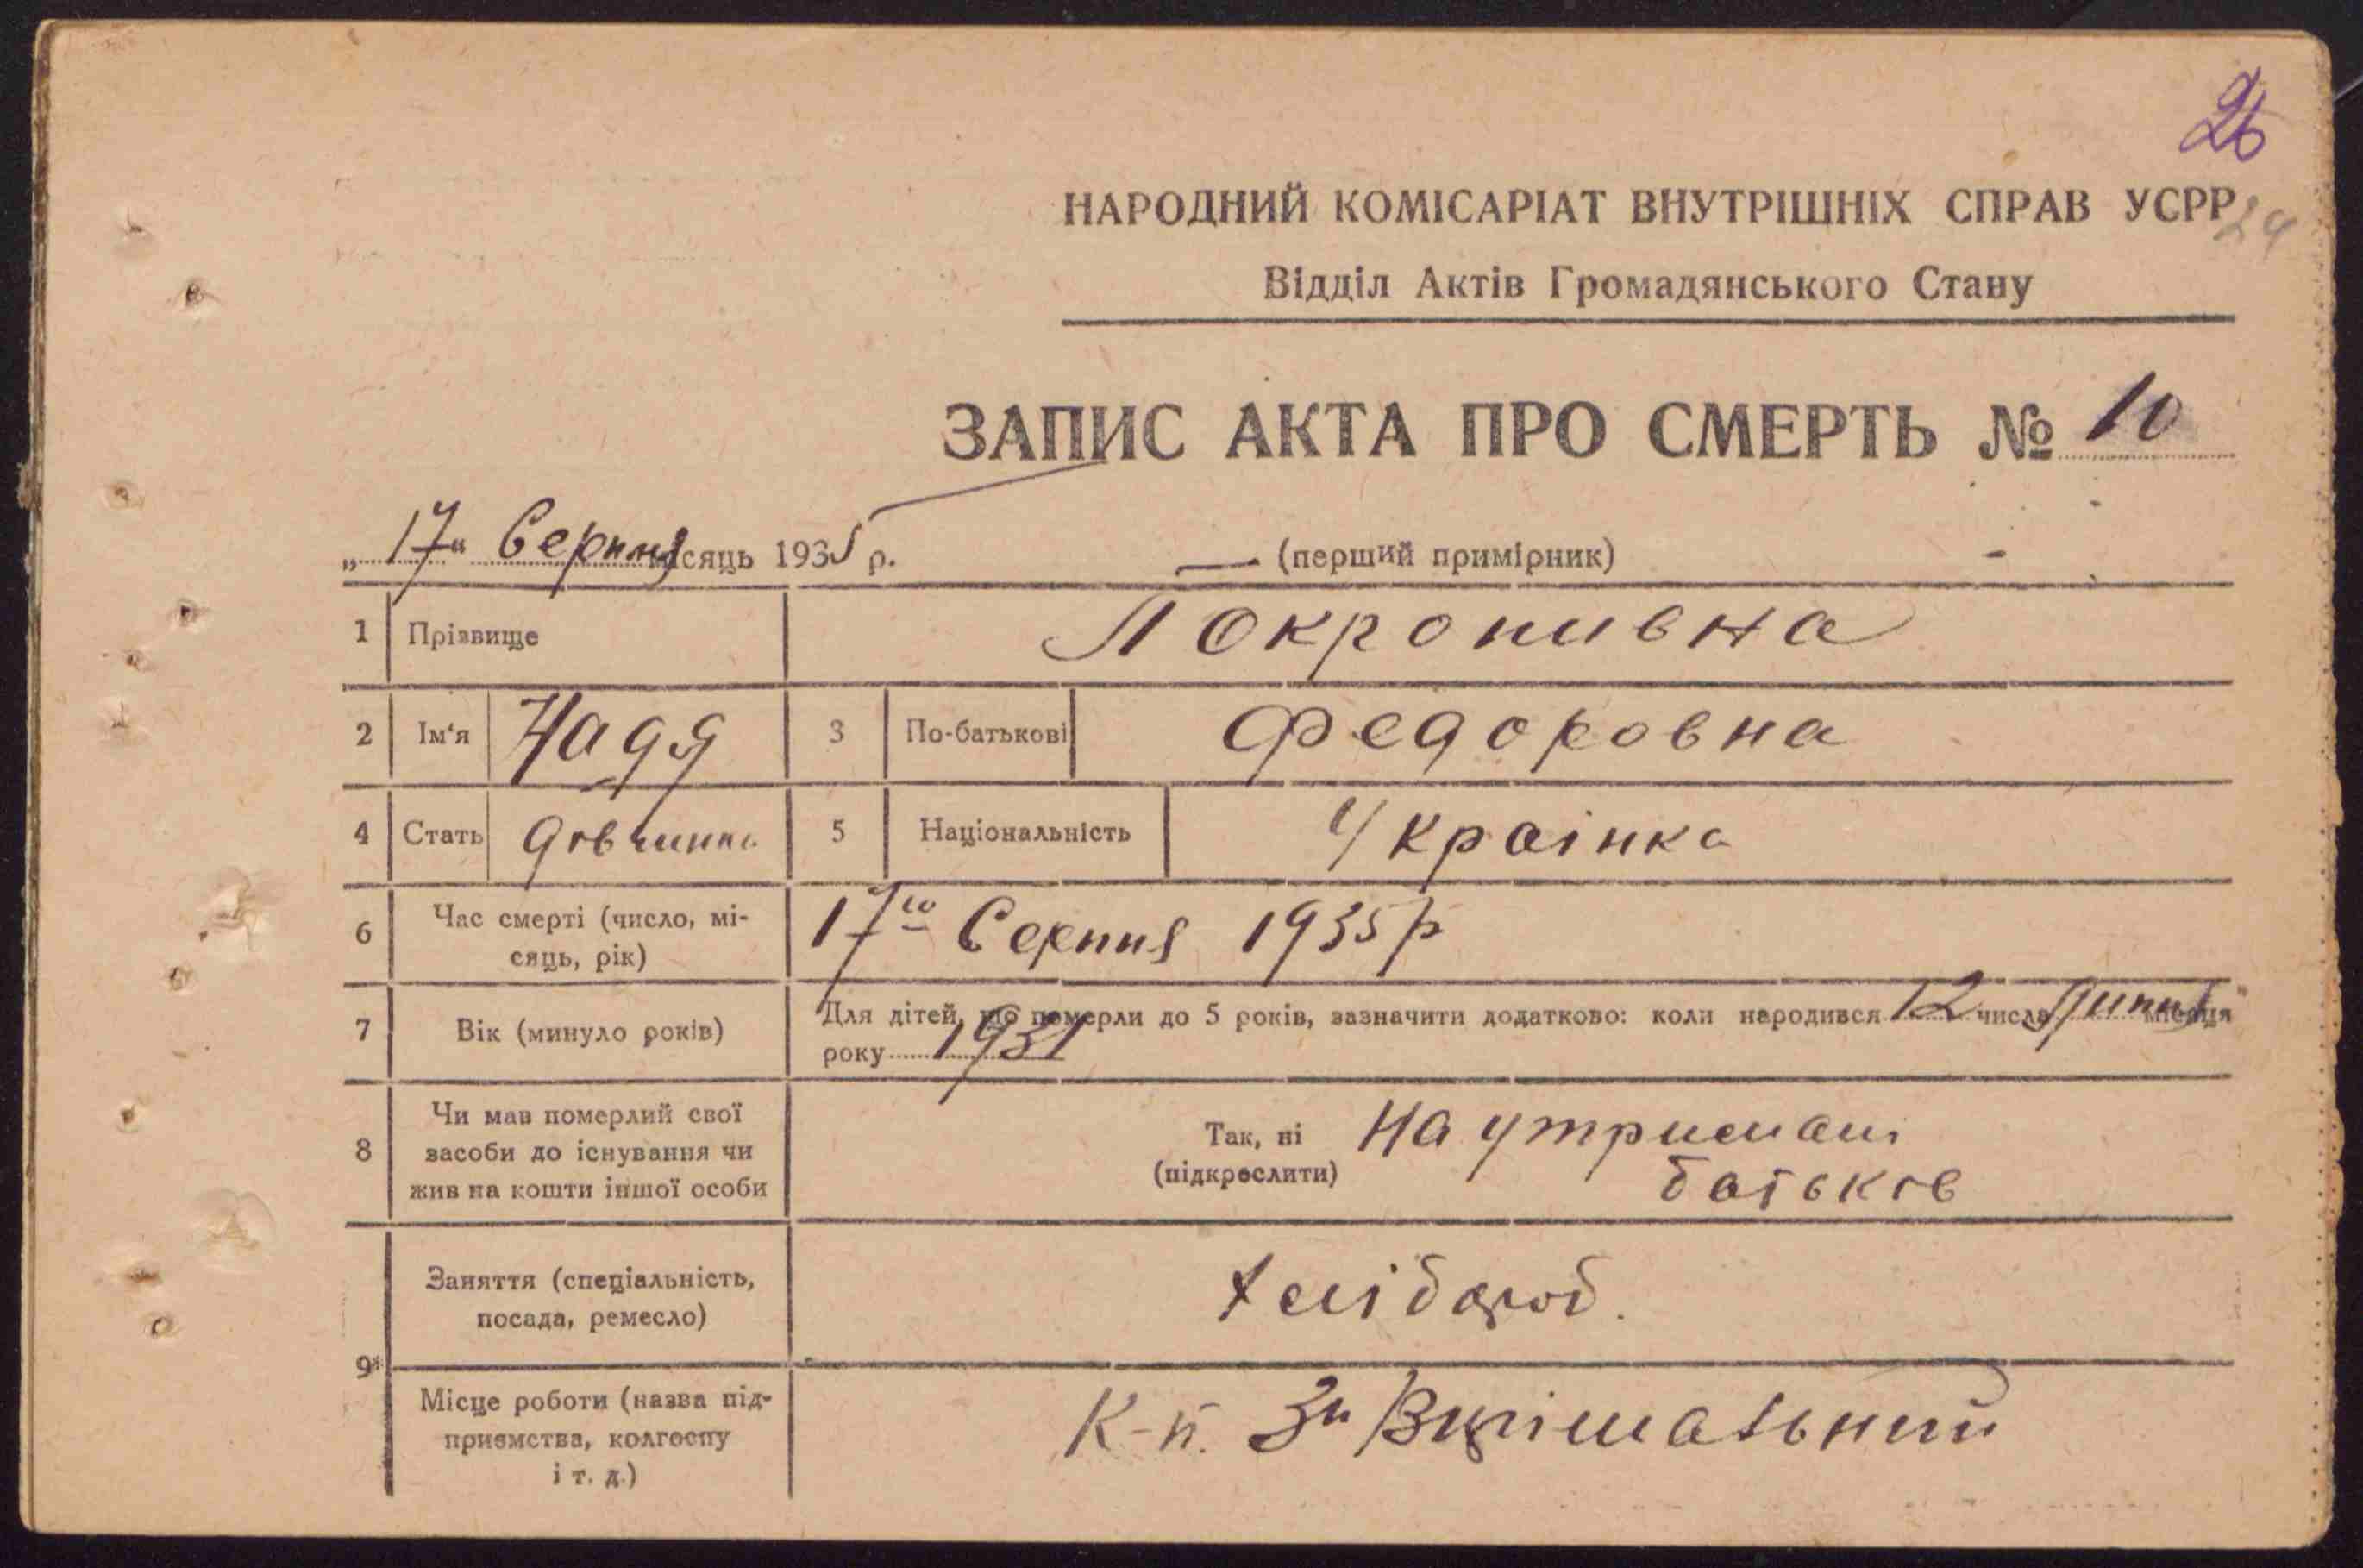 26
НАРОДНИЙ КОМІСАРІАТ ВНУТРІШНІХ СПРАВ УСРР
24
Відділ Актів Громадянського Стану
ЗАПИС АКТА ПРО СМЕРТЬ № 10
„17“ Серпня місяць 1935 р.
(перший примірник)
1 Прізвище Покропивна
2 Ім'я Надя 3 По-батькові Федоровна
4 Стать дівчинка 5 Національність Українка
6 Час смерті (число, мі-
сяць, рік) 17го Серпня 1935 р
7 Вік (минуло років) Для дітей, що померли до 5 років, зазначити додатково: коли народився 12 числа Липня місяця
року 1931
8 Чи мав померлий свої
засоби до існування чи
жив на кошти іншої особи
Так, ні
(підкреслити)
На утримані
батьків
9 Заняття (спеціальність,
посада, ремесло) хлібороб.
Місце роботи (назва під-
приємства, колгоспу
і т. д.)
К-п. 3й Вирішальний